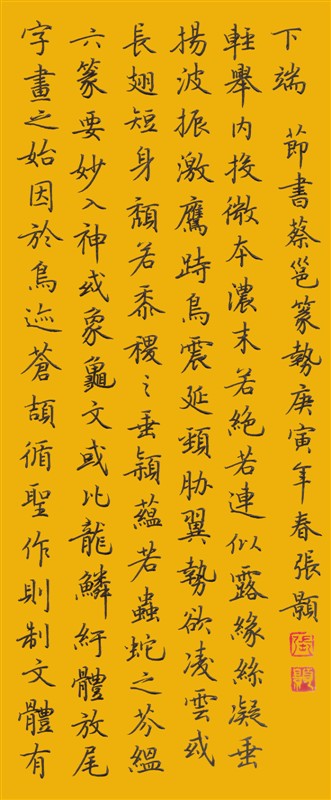 字畫之始因於鳥迹蒼頡循聖作則制文體有
六篆要妙入神或象龜文或比龍鱗紓體放尾
長翅短身頹若黍稷之垂穎蘊若蟲蛇之芬縕
揚波振激鷹跱鳥震延頸胁翼勢欲凌雲或
輕舉內投微本濃末若絕若連似露緣絲凝垂
下端
節書蔡邕篆勢庚寅年春張顥